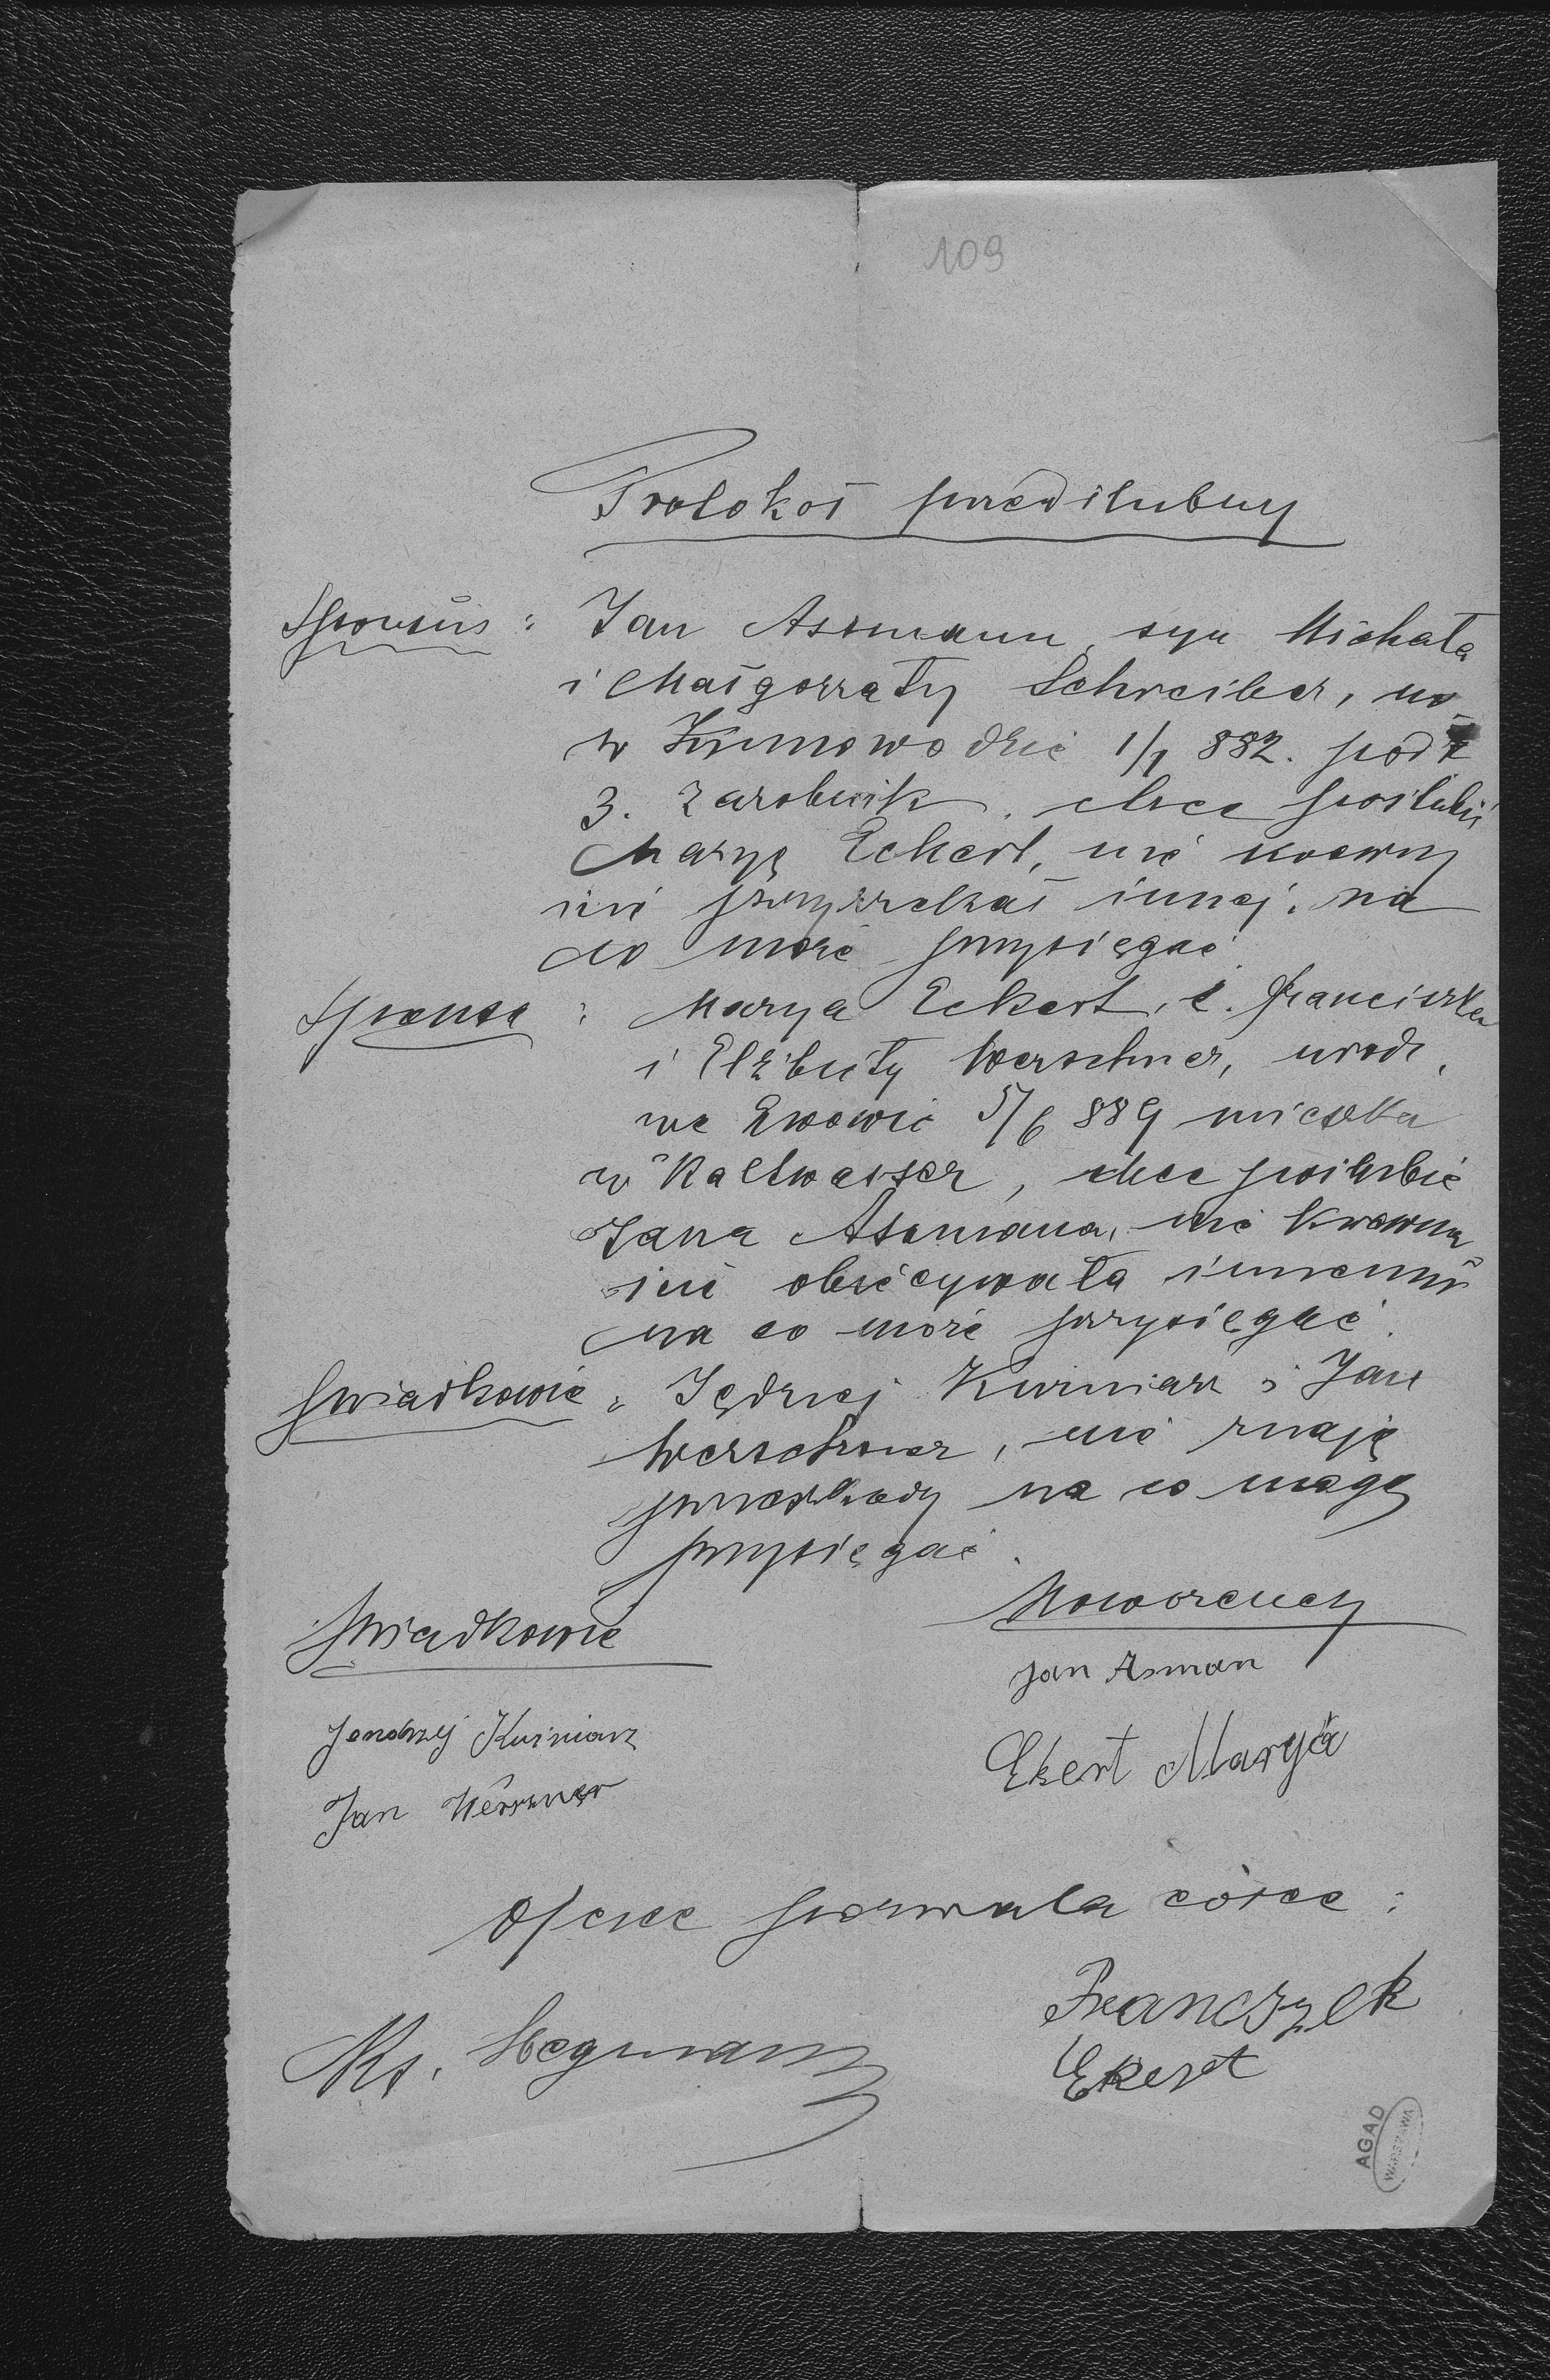 109
Protokoł przedślubny
Sponsus : Jan Assmann, syn Michała
i Małgorzaty Schreiber, ur.
w Zimnowodzie 1/1 882. pod
3. zarobnik, chce poślubić
Maryę Eckert, nie krewny
ini przyrzekał innej, na
co może przysięgać
Sponsa : Marya Eckert, c. Franciszka
i Elżbiety Werschner, urodz.
we Lwowie 5/6 889 mieszka
w Kaltwasser, chce poślubić
Jana Asmana, nie krewna
ini obiecywała innemu
na co może przysięgać.
Świadkowie : Jędrzej Kuśniarz i Jan
Werschner, nie znają
przeszkody na co mogą
przysięgać.
Świadkowie
Nowożeńcy
Jan Asman
Jendrzej Kuśniarz
Ekert Marya
Jan Werszner
Ojciec pozwala córce :
Franczszek
Ks. Hegmann
Ekert
AGAD
WARSZAWA